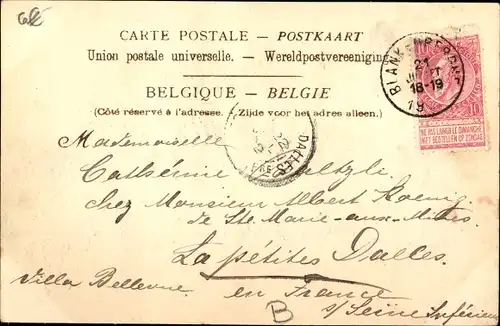 CARTE POSTALE - POSTKAART
Union postale universelle. - Wereldpostvereeniging
BELGIQUE - BELGIE
(Côté réservé à l'adresse. (Zijde voor het adres alleen.)
BLANKENBERGHE
21
18-19
19
10
10
NE PAS LIVRER LE DIMANCHE
NIET BESTELLEN OP ZONDAG
DALLES
Mademoiselle
Cathérine
chez Monsieur Albert Koenig
de Ste Marie-aux-Mines
La pétites Dalles
Villa Bellevue
en France
s/ Seine Inférieure
B